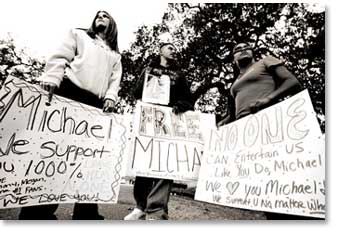 Michael
We Support
You 1000%
#1 FANS.
WE LOVE YOU!
FREE
MICHA
NO ONE
CAN Entertain US
Like You Do, Michael
We ♥ you Michael
We Support U No matter What